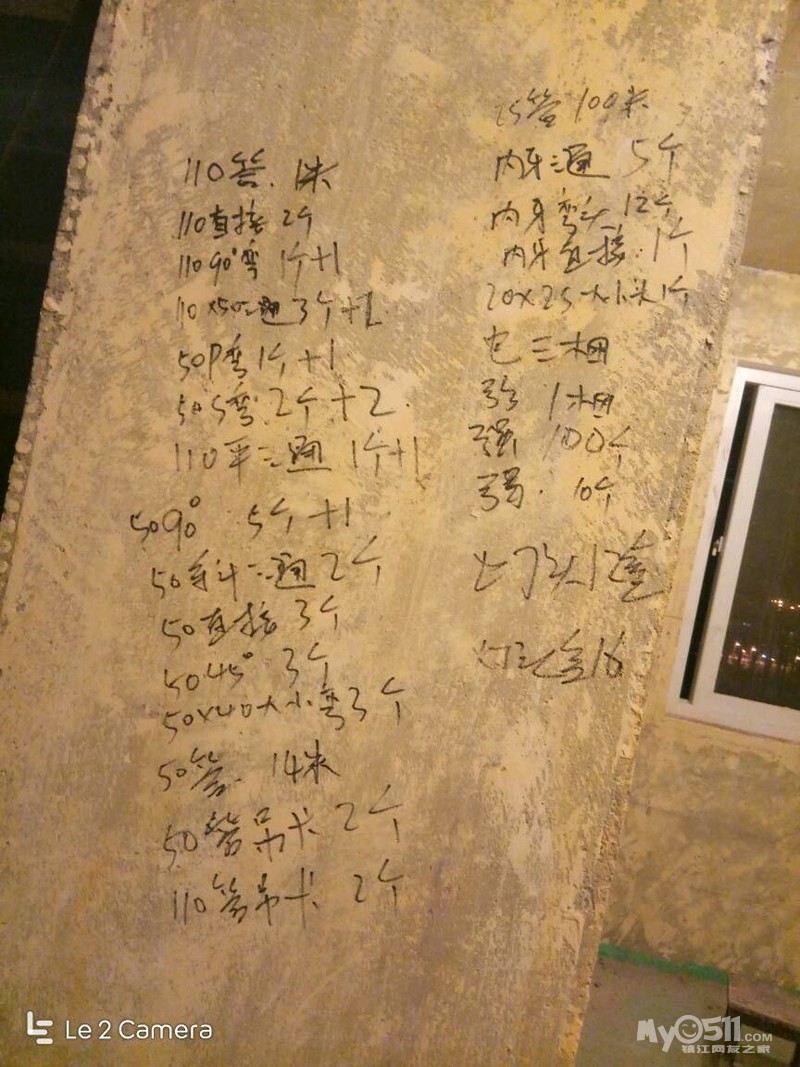 110管 1米
110直接 2个
110 90°弯 1个+1
110x50三通 3个+2
50P弯 1个+1
50S弯 2个+2
110平三通 1个+1
50 90° 5个+1
50斜三通 2个
50直接 3个
50 45° 3个
50x40大小弯 3个
50管 14米
50管吊卡 2个
110管吊卡 2个
25管 100米
内牙三通 5个
内牙弯头 12个
内牙直接 1个
20x25大小头 1个
电三相
1相
强 100个
弱 10个
16
Le 2 Camera
My0511.COM
镇江网友之家